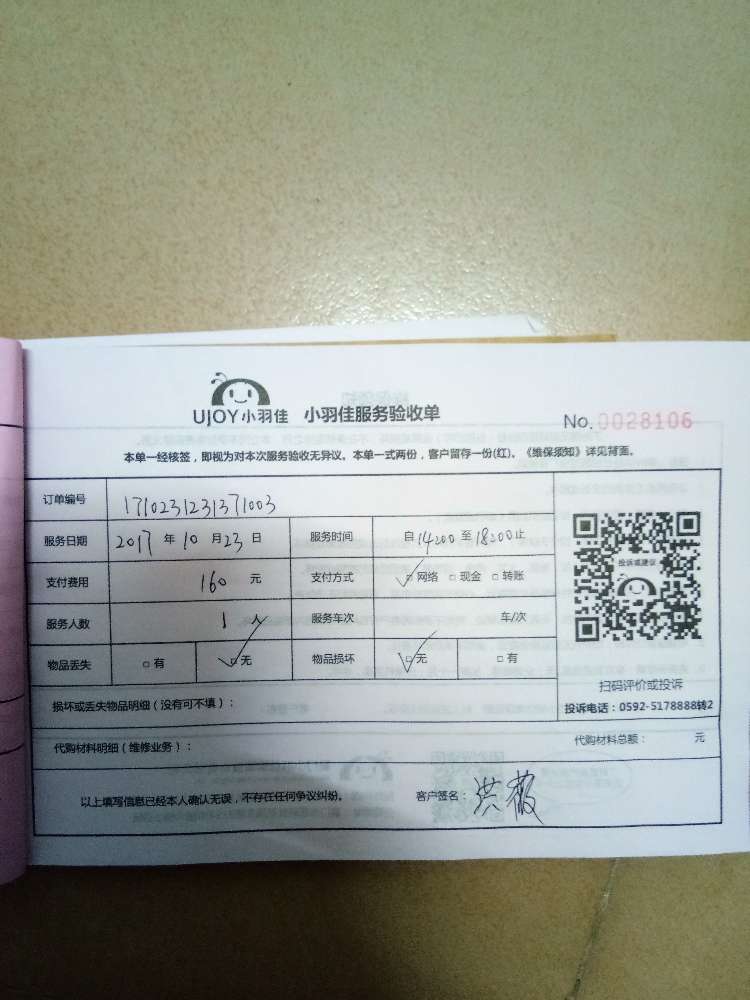 UJOY小羽佳 小羽佳服务验收单 No.0028106
本单一经核签，即视为对本次服务验收无异议。本单一式两份，客户留存一份(红)。《维保须知》详见背面。
订单编号 1710231231371003
服务日期 2017 年 10 月 23 日 服务时间 自 14:00 至 18:00 止
支付费用 160 元 支付方式 ☑网络 □现金 □转账
服务人数 1 人 服务车次 车/次
物品丢失 □有 ☑无 物品损坏 ☑无 □有
投诉或建议
扫码评价或投诉
损坏或丢失物品明细（没有可不填）：
投诉电话：0592-5178888转2
代购材料明细（维修业务）： 代购材料总额： 元
以上填写信息已经本人确认无误，不存在任何争议纠纷。 客户签名：洪薇